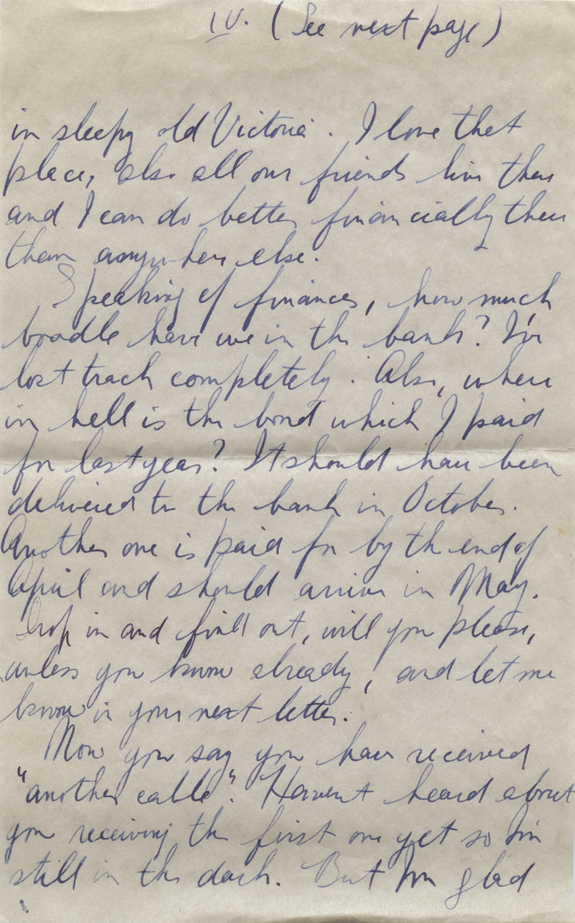 IV. (See next page)
in sleepy old Victoria. I love that
place, also all our friends live there
and I can do better financially there
than anywhere else.
Speaking of finances, how much
boodle have we in the bank? I've
lost track completely. Also, where
in hell is the bond which I paid
for last year? It should have been
delivered to the bank in October.
Another one is paid for by the end of
April and should arrive in May.
Drop in and find out, will you please,
unless you know already, and let me
know in your next letter.
Now you say you have received
"another cable". Haven't heard about
you receiving the first one yet so I'm
still in the dark. But I'm glad